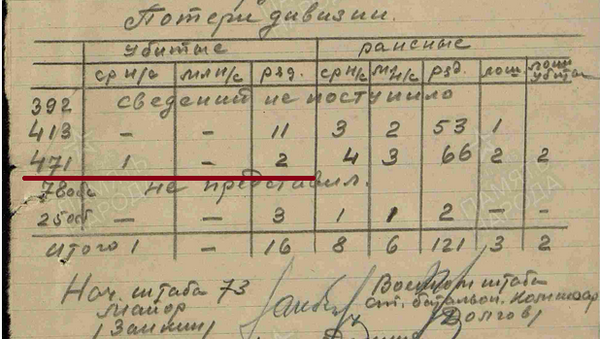 Потери дивизии.
убитые раненые
ср н/с мл н/с ряд. ср н/с м. н/с ряд. лош лош убитых
392 сведений не поступило
413 - - 11 3 2 53 1
471 1 - 2 4 3 66 2 2
78 не представил.
25 - - 3 1 1 2 - -
итого 1 - 16 8 6 121 3 2
Нач. штаба 73 Военком штаба
Майор ст. батальон. комиссар
/Заикин/ /Долгов/
ПАМЯТЬ НАРОДА